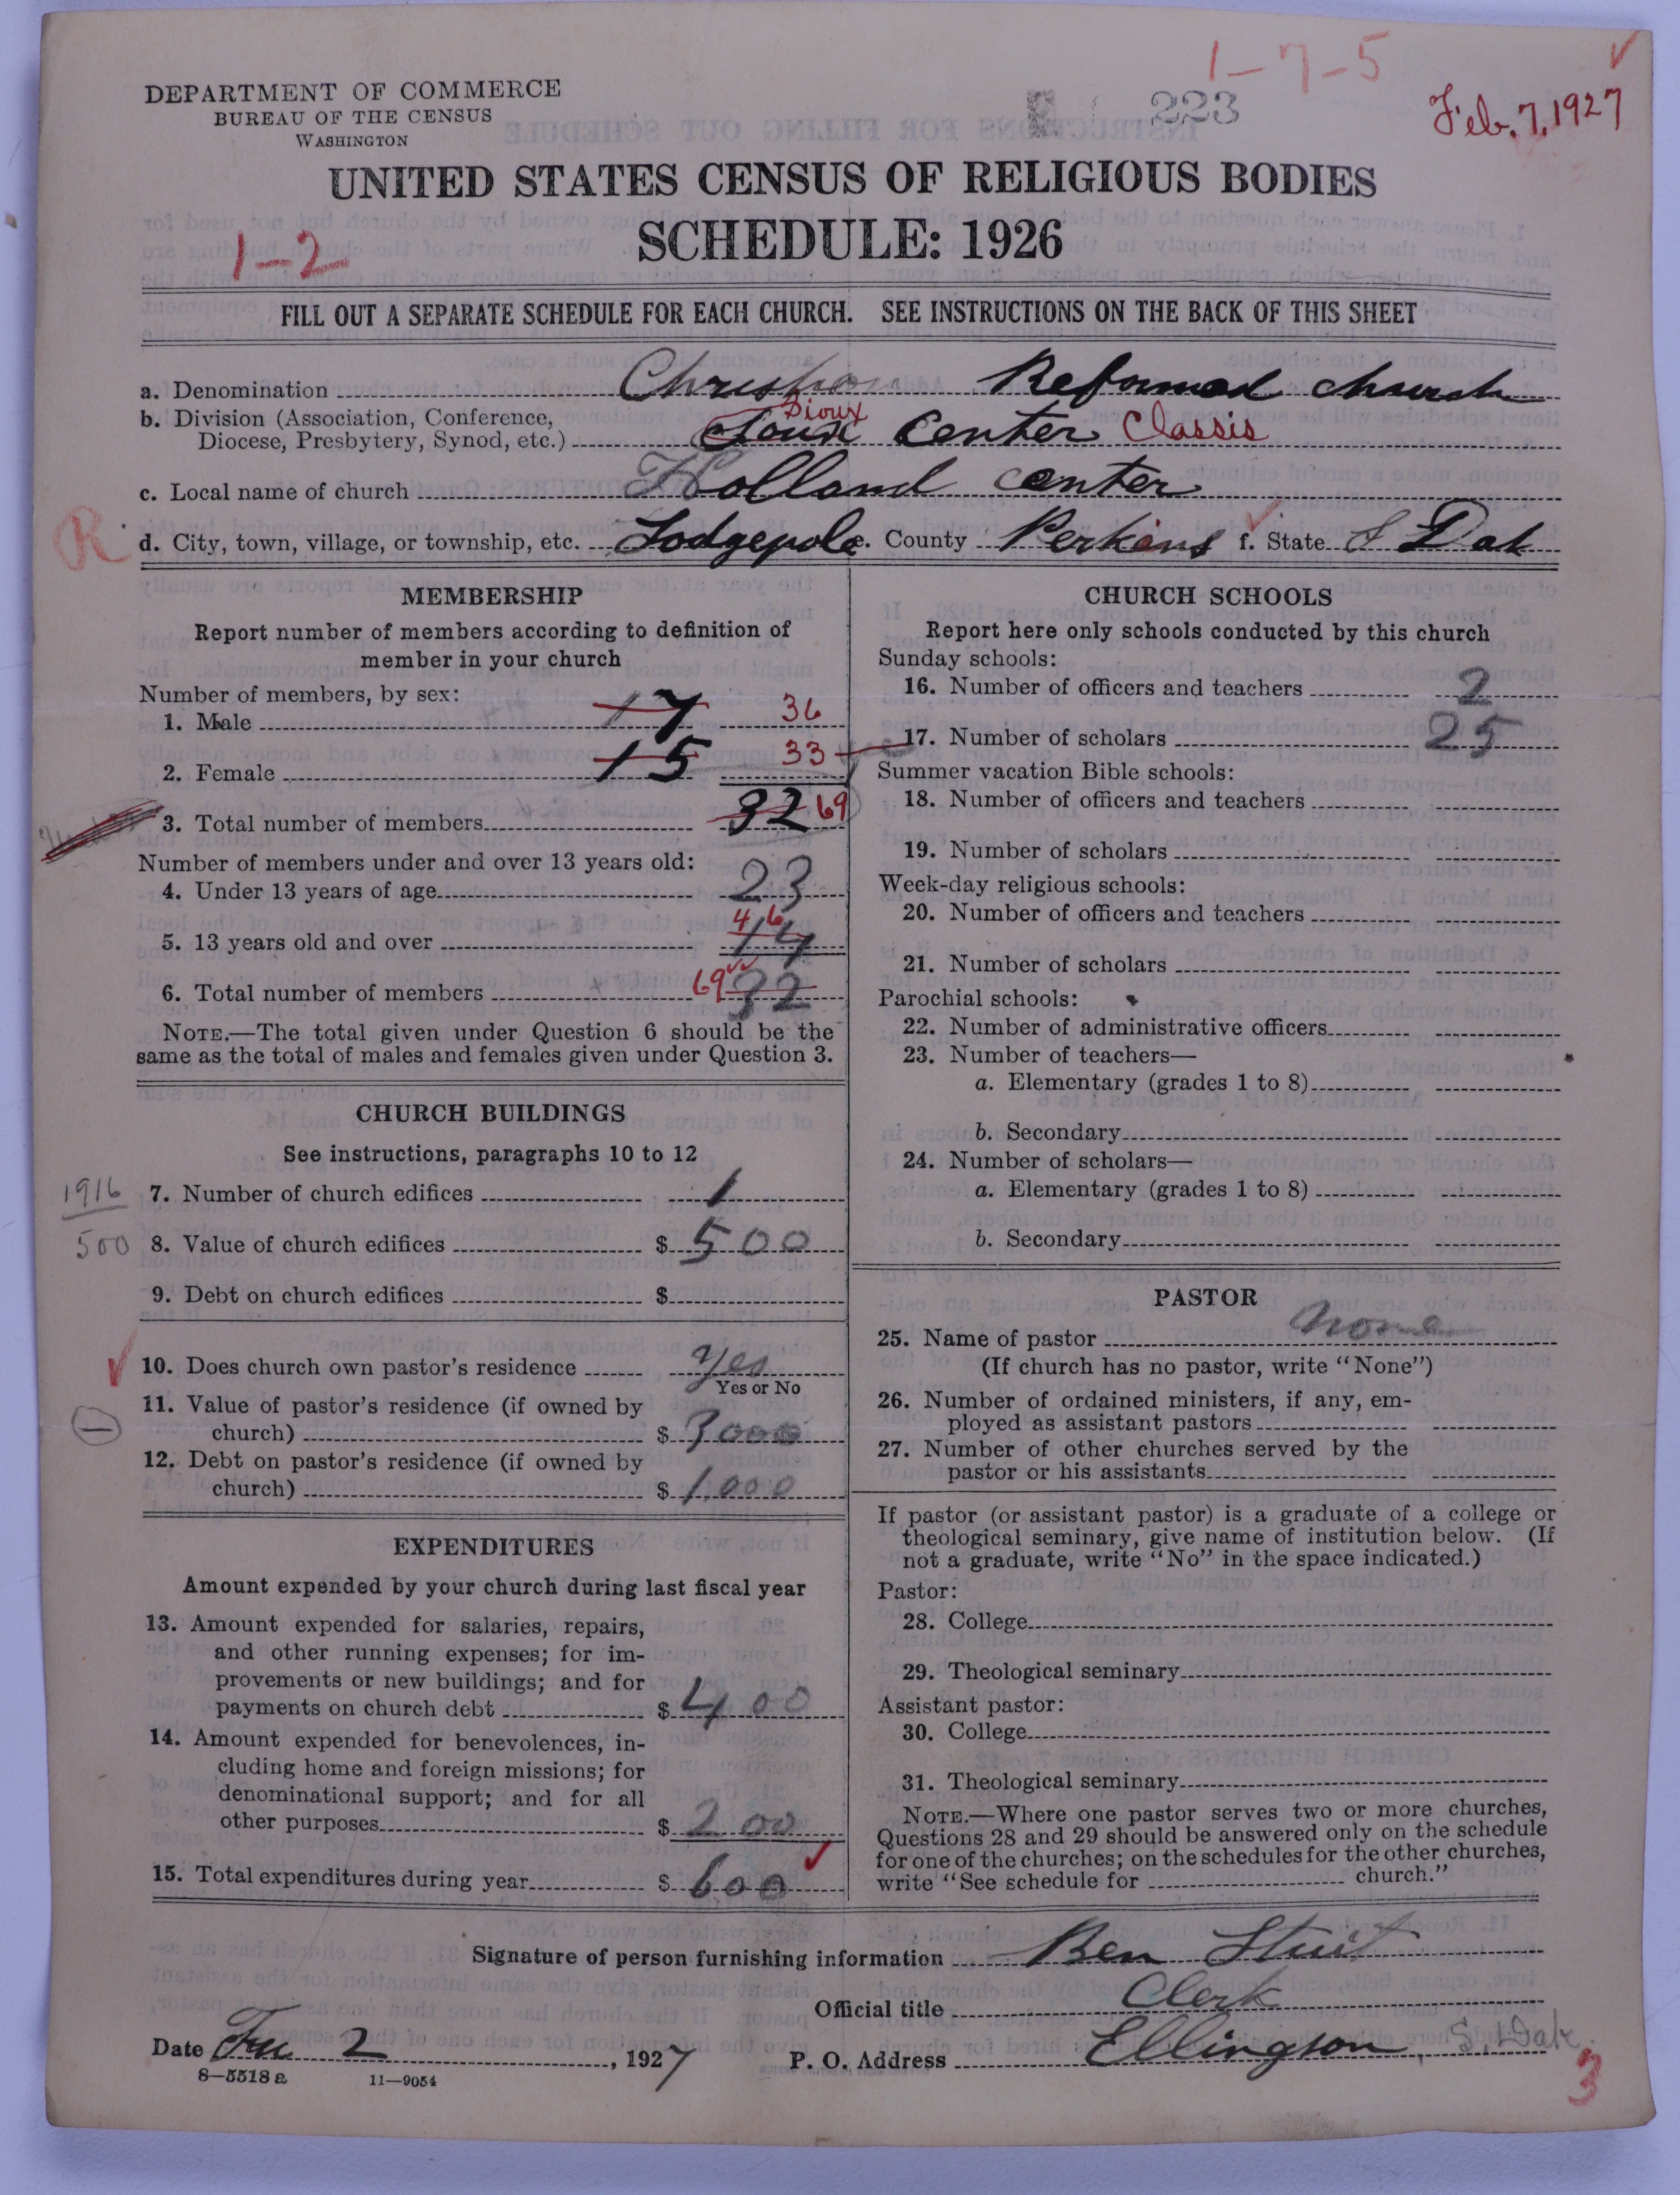 1-7-5
223
Feb. 7, 1927
DEPARTMENT OF COMMERCE
BUREAU OF THE CENSUS
WASHINGTON
UNITED STATES CENSUS OF RELIGIOUS BODIES
SCHEDULE: 1926
1-2
FILL OUT A SEPARATE SCHEDULE FOR EACH CHURCH. SEE INSTRUCTIONS ON THE BACK OF THIS SHEET
a. Denomination Christian Reformed church
b. Division (Association, Conference,
Diocese, Presbytery, Synod, etc.) Sioux Center Classis
c. Local name of church Holland center
R
d. City, town, village, or township, etc. Lodgepole e. County Perkins f. State S Dak
MEMBERSHIP
Report number of members according to definition of
member in your church
Number of members, by sex:
1. Male 17 36
2. Female 15 33
3. Total number of members 32 69
Number of members under and over 13 years old:
4. Under 13 years of age 23
5. 13 years old and over 14 46
6. Total number of members 69 32
NOTE.—The total given under Question 6 should be the
same as the total of males and females given under Question 3.
CHURCH BUILDINGS
See instructions, paragraphs 10 to 12
1916
7. Number of church edifices 1
500
8. Value of church edifices $ 500
9. Debt on church edifices $
10. Does church own pastor's residence Yes
Yes or No
11. Value of pastor's residence (if owned by
church) $ 3000
12. Debt on pastor's residence (if owned by
church) $ 1,000
EXPENDITURES
Amount expended by your church during last fiscal year
13. Amount expended for salaries, repairs,
and other running expenses; for im-
provements or new buildings; and for
payments on church debt $ 400
14. Amount expended for benevolences, in-
cluding home and foreign missions; for
denominational support; and for all
other purposes $ 200
15. Total expenditures during year $ 600
CHURCH SCHOOLS
Report here only schools conducted by this church
Sunday schools:
16. Number of officers and teachers 2
17. Number of scholars 25
Summer vacation Bible schools:
18. Number of officers and teachers
19. Number of scholars
Week-day religious schools:
20. Number of officers and teachers
21. Number of scholars
Parochial schools:
22. Number of administrative officers
23. Number of teachers—
a. Elementary (grades 1 to 8)
b. Secondary
24. Number of scholars—
a. Elementary (grades 1 to 8)
b. Secondary
PASTOR
25. Name of pastor None
(If church has no pastor, write "None")
26. Number of ordained ministers, if any, em-
ployed as assistant pastors
27. Number of other churches served by the
pastor or his assistants
If pastor (or assistant pastor) is a graduate of a college or
theological seminary, give name of institution below. (If
not a graduate, write "No" in the space indicated.)
Pastor:
28. College
29. Theological seminary
Assistant pastor:
30. College
31. Theological seminary
NOTE.—Where one pastor serves two or more churches,
Questions 28 and 29 should be answered only on the schedule
for one of the churches; on the schedules for the other churches,
write "See schedule for church."
Signature of person furnishing information Ben Stuit
Official title Clerk
Date 2, 1927
P. O. Address Ellingson, S. Dak
8-5518 a 11-9054
3